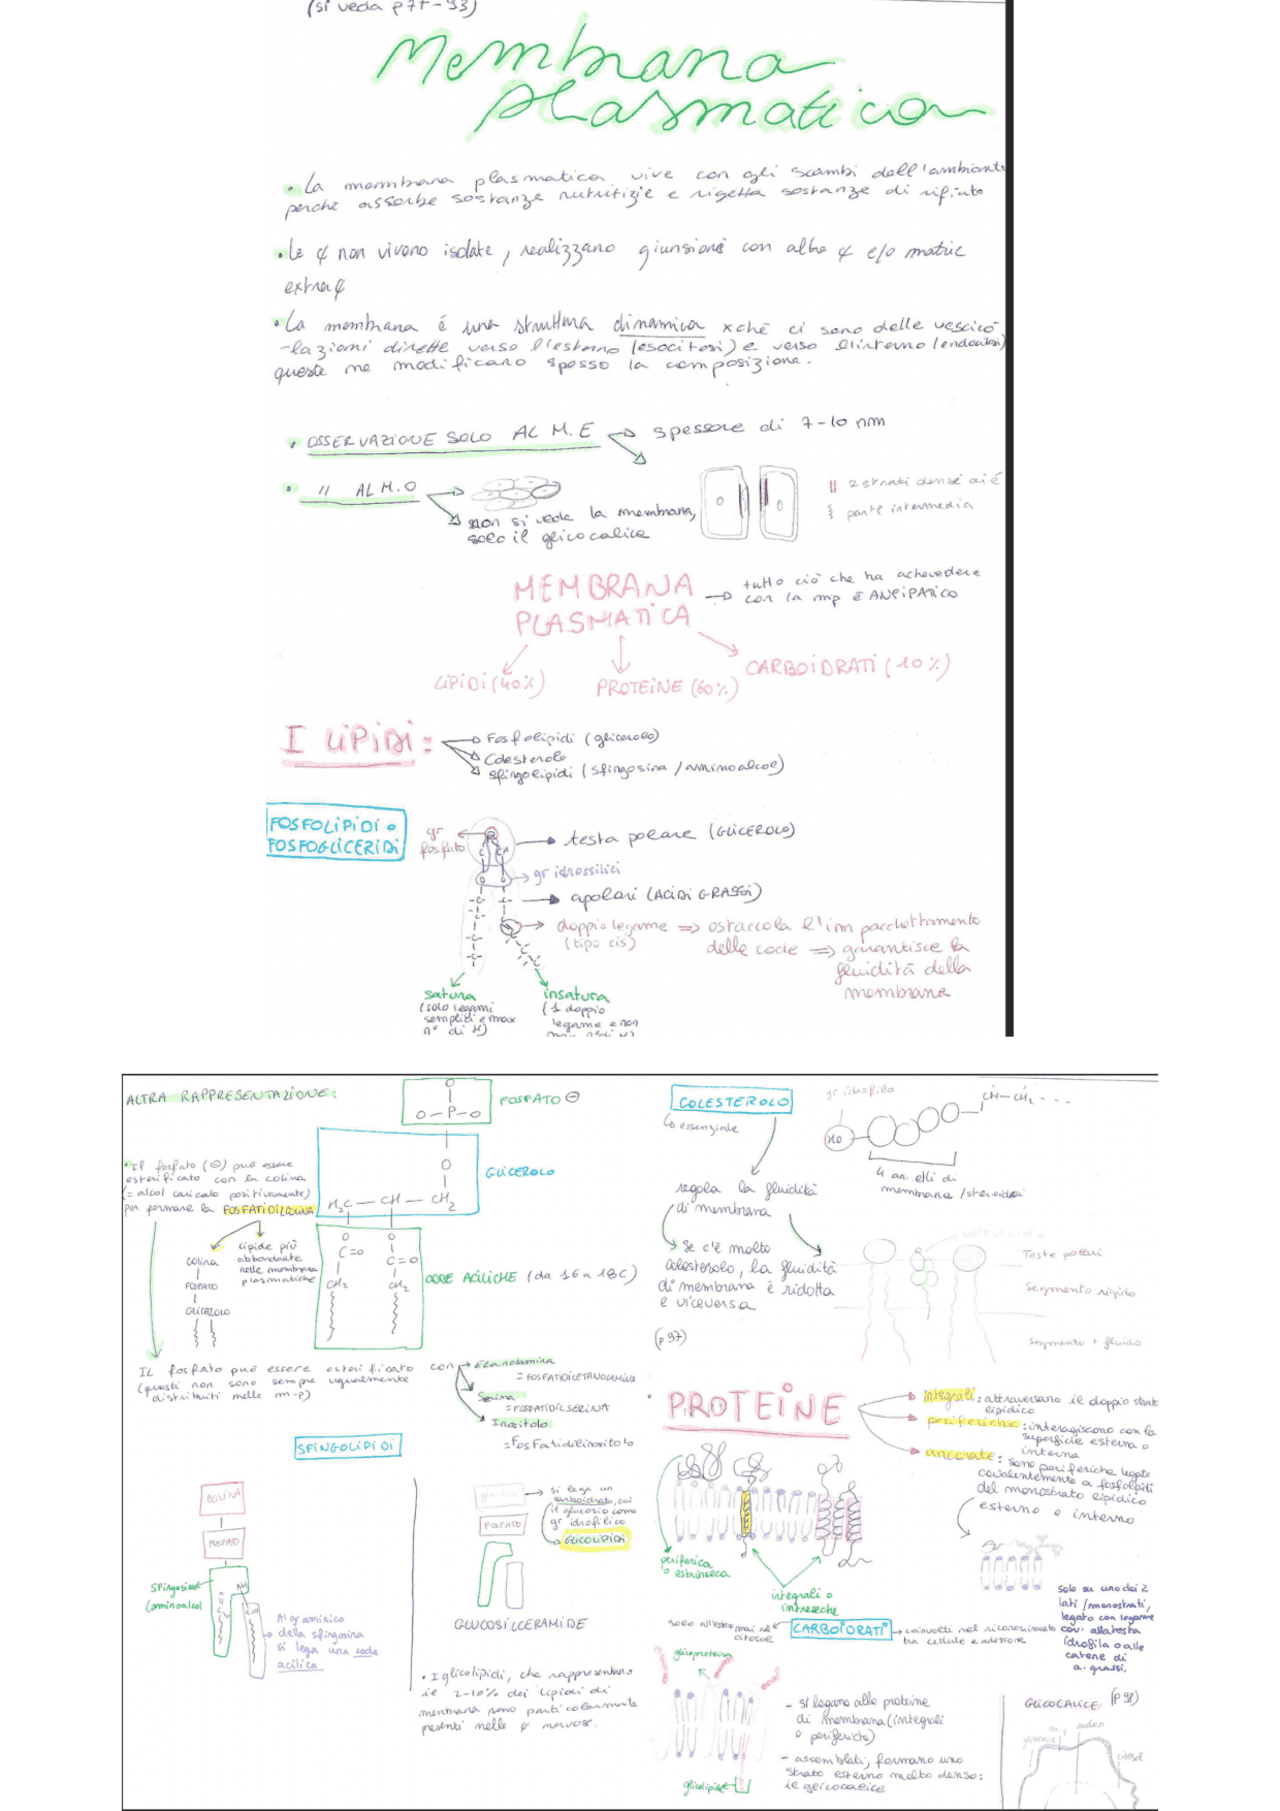 (si veda p77-93)
Membrana
plasmatica
• La membrana plasmatica vive con gli scambi dell'ambiente
perchè assorbe sostanze nutritizie e rigetta sostanze di rifiuto
• Le ¢ non vivono isolate, realizzano giunsioni con altre ¢ e/o matrice
extra¢
• La membrana é una struttura dinamica xchè ci sono delle vescico
-lazioni dirette verso l'esterno (esocitosi) e verso l'interno (endocitosi)
queste ne modificano spesso la composizione.
• OSSERVAZIONE SOLO AL M.E → spessore di 7-10 nm
• " AL M.O
non si vede la membrana,
solo il glicocalice
" 2 strati densi ai é
} parte intermedia
MEMBRANA
PLASMATICA
→ tutto ciò che ha a che vedere
con la mp è ANFIPATICO
LIPIDI (40%)
PROTEINE (60%)
CARBOIDRATI (10%)
I LIPIDI:
→ Fosfolipidi (glicerolo)
→ Colesterolo
→ sfingolipidi (sfingosina / aminoalcol)
FOSFOLIPIDI o
FOSFOGLICERIDI
gr
fosfato
→ testa polare (GLICEROLO)
→ gr idrossilici
→ apolari (ACIDI GRASSI)
→ doppio legame ⇒ ostaccola l'impacchettamento
(tipo cis) delle code ⇒ garantisce la
fluidità della
membrana
satura
(solo legami
semplici e max
n° di H)
insatura
(1 doppio
legame e non
ALTRA RAPPRESENTAZIONE:
O
O-P-O
FOSFATO ⊖
O
GLICEROLO
H₂C — CH — CH₂
• Il fosfato (⊖) può essere
esterificato con la colina
(= alcol caricato positivamente)
per formare la FOSFATIDILCOLINA
COLINA
FOSFATO
GLICEROLO
lipide più
abbondante
nelle membrane
plasmatiche
O O
C=O C=O
CH₂ CH₂
CODE ACILICHE (da 16 a 18C)
IL fosfato può essere esterificato con → Etanolamina
(questi non sono sempre ugualmente
distribuiti nella m-p)
= FOSFATIDILETANOLAMINA
Serina
= FOSFATIDILSERINA
Inositolo
= Fosfatidilinositolo
SFINGOLIPIDI
COLINA
FOSFATO
Sfingosina
(aminoalcol
NH
Al gr aminico
della sfingosina
si lega una coda
acilica
→ si lega un
carboidrato, cui
il glucosio come
gr idrofilico
→ GLICOLIPIDI
FOSFATO
GLUCOSILCERAMIDE
• I glicolipidi, che rappresentano
il 2-10% dei lipidi di
membrana sono particolarmente
presenti nelle ¢ nervose.
COLESTEROLO
Lo essenziale
gr idrofilo
HO
CH-CH₂ - - -
4 anelli di
membrana /steroidei
regola la fluidità
di membrana
→ Se c'è molto
colesterolo, la fluidità
di membrana è ridotta
e viceversa
(p 97)
colesterolo
Teste polari
Segmento rigido
Segmento + fluido
PROTEINE
→ integrali: attraversano il doppio strato
lipidico
→ periferiche: interagiscono con la
superficie esterna o
interna
→ ancorate: sono periferiche legate
covalentemente a fosfolipidi
del monostrato lipidico
esterno o interno
periferica
o estrinseca
integrali o
intrinseche
solo su uno dei 2
lati /monostrati,
legato con legame
cov. alla testa
idrofila o alle
catene di
a. grassi.
solo all'esterno mai nel
citosol
CARBOIDRATI
→ coinvolti nel riconoscimento
tra cellule e adesione
glicoproteina
glicolipide
- si legano alle proteine
di membrana (integrali
o periferiche)
- assemblati, formano uno
strato esterno molto denso:
il glicocalice
GLICOCALICE (p 98)
glicocalice
m.p
nucleo
citosol